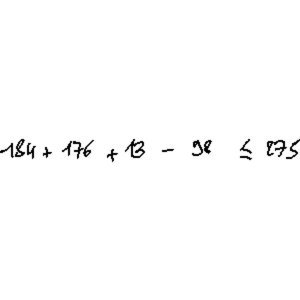 184 + 176 + 13 - 98 ≤ 275